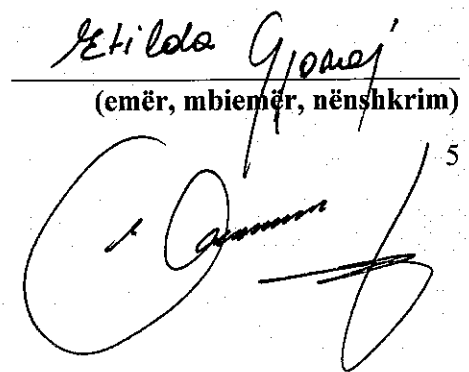 Etilda Gjonaj
(emër, mbiemër, nënshkrim)
5